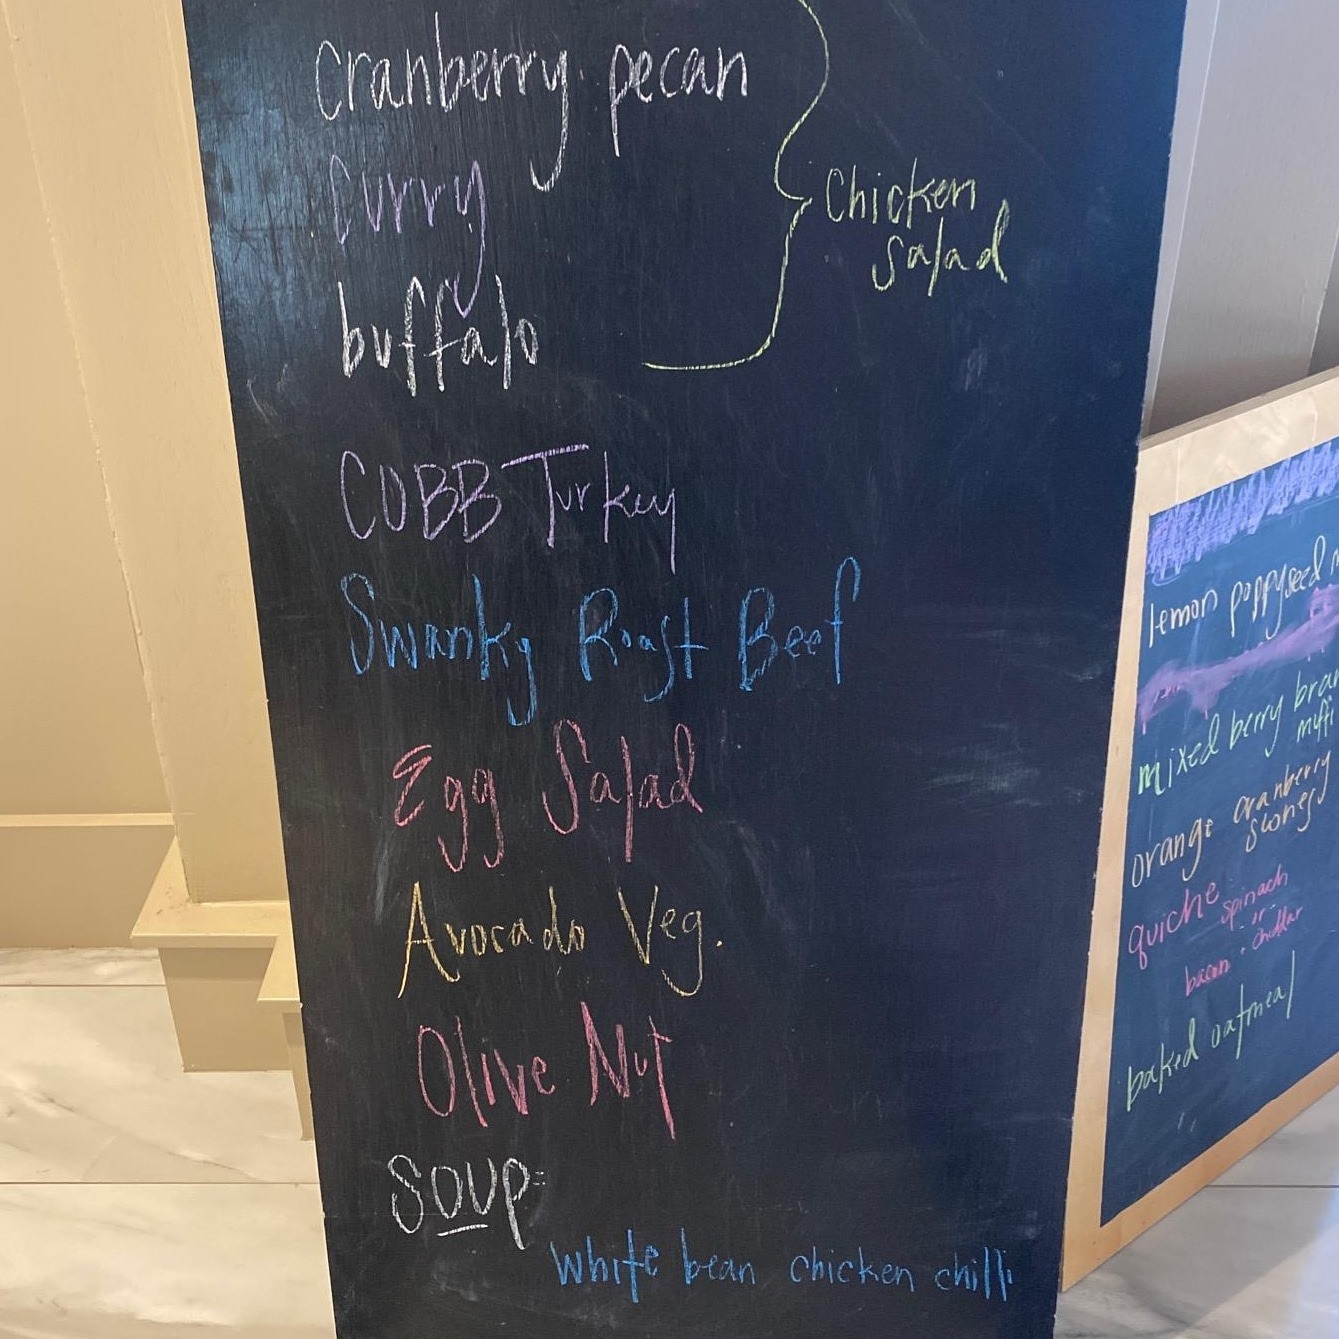 cranberry pecan
curry
buffalo
Chicken
salad
COBB Turkey
Swanky Roast Beef
Egg Salad
Avocado Veg.
Olive Nut
SOUP:
White bean chicken chilli
lemon poppyseed
mixed berry bran
muffi
orange cranberry
scones
quiche spinach
or
bacon + cheddar
baked oatmeal